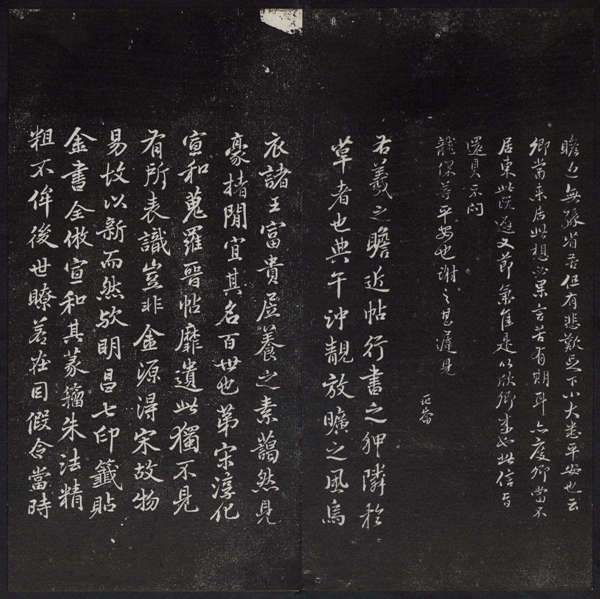 瞻近無緣省苦但有悲歎足下小大悉平安也云
卿當來居此想必果言苦有期耳亦度卿當不
居東此既避又節氣佳是以欣卿來也此信旨
還具示問
龍保等平安也謝之甚遲見
右羲之瞻近帖行書之狎隣於
草者也典午沖靚放曠之風烏
衣諸王富貴居養之素藹然見
豪楮閒宜其名百世也第宋淳化
宣和蒐羅晉帖靡遺此獨不見
有所表識豈非金源淂宋故物
易妝以新而然歟明昌七印籤貼
金書全倣宣和其篆籀朱法精
粗不侔後世瞭若在目假令當時